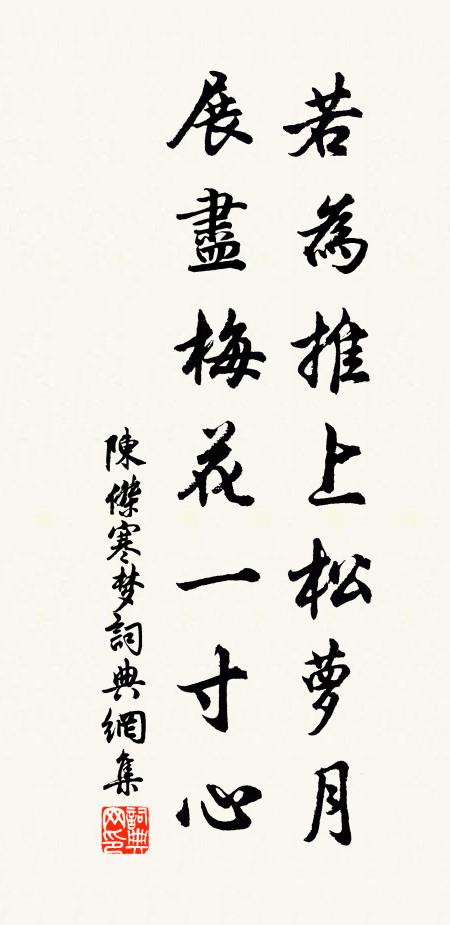 若為推上松萝月
展盡梅花一寸心
陳傑寒梦詞典網集
詞典网印